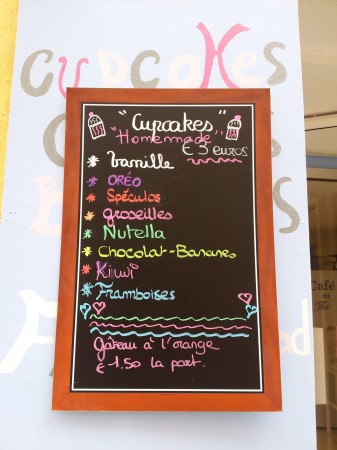 Cupcakes
"Cupcakes"
"Homemade"
€ 3 euros
* Vanille
* Oréo
* Spéculos
* Groseilles
* Nutella
* Chocolat-Bananes
* Kiwi
* Framboises
Gâteau à l'orange
€ 1.50 la part.
Café